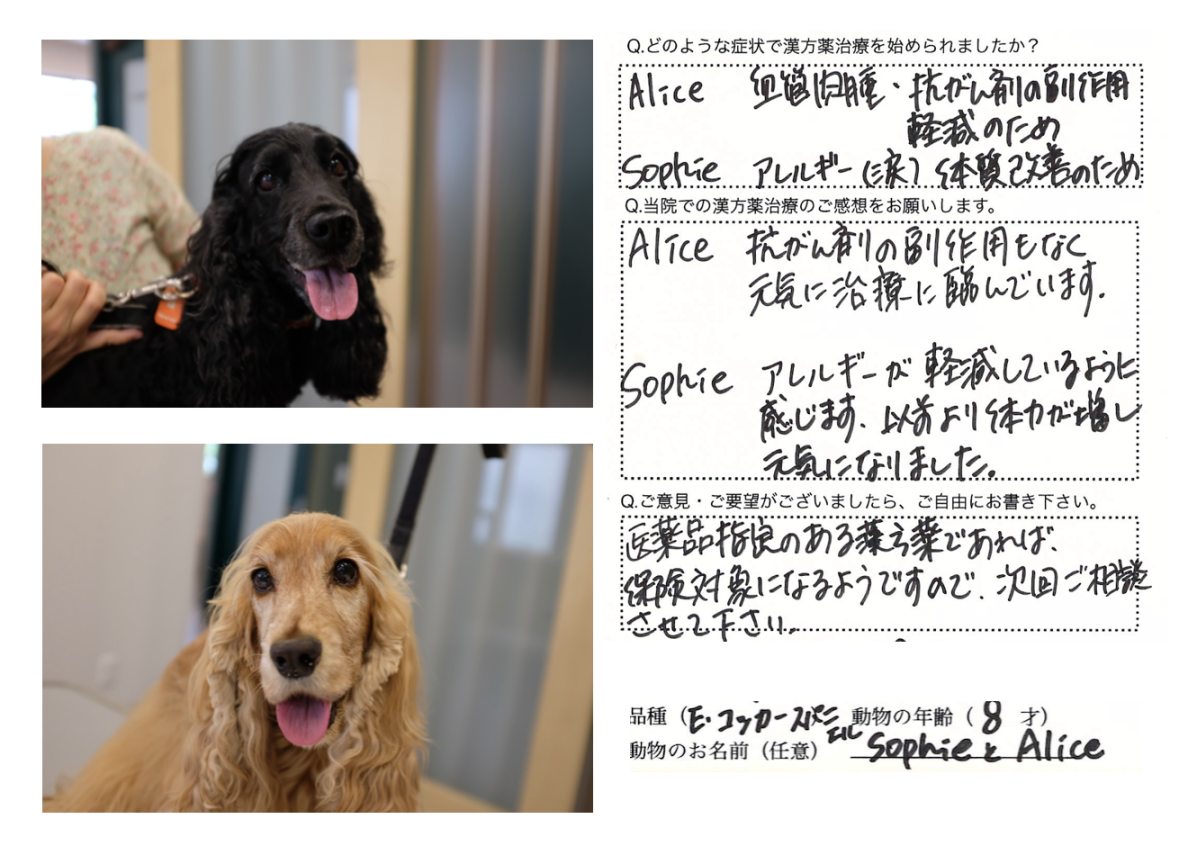 Q.どのような症状で漢方薬治療を始められましたか？
Alice 血管肉腫・抗がん剤の副作用
軽減のため
Sophie アレルギー(涙) 体質改善のため
Q.当院での漢方薬治療のご感想をお願いします。
Alice 抗がん剤の副作用もなく
元気に治療に臨んでいます.
Sophie アレルギーが軽減しているように
感じます. 以前より体力が増し
元気になりました。
Q.ご意見・ご要望がございましたら、ご自由にお書き下さい。
医薬品指定のある漢方薬であれば、
保険対象になるようですので、次回ご相談
させて下さい.
品種（E・コッカースパニエル 動物の年齢（ 8 才）
動物のお名前（任意） SophieとAlice